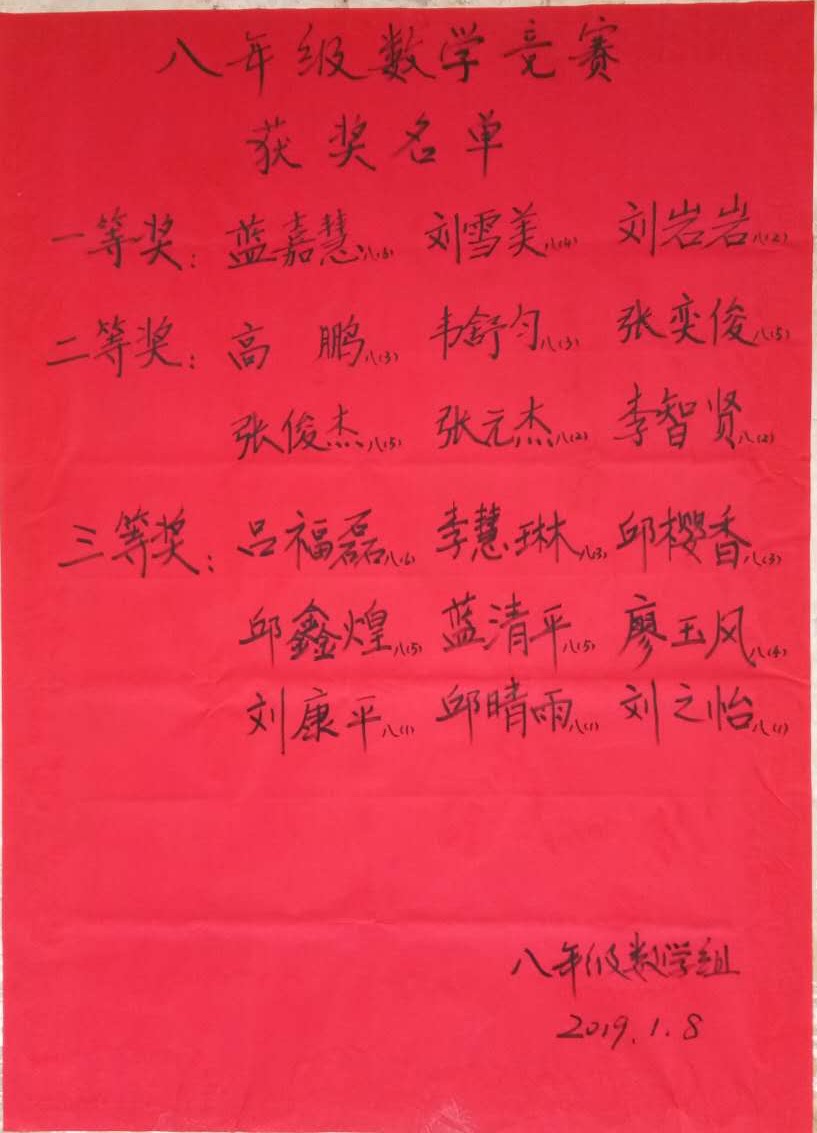 八年级数学竞赛
获奖名单
一等奖：蓝嘉慧八(6) 刘雪美八(4) 刘岩岩八(2)
二等奖：高鹏八(3) 韦舒匀八(3) 张奕俊八(5)
张俊杰八(5) 张元杰八(2) 李智贤八(2)
三等奖：吕福磊八(6) 李慧琳八(3) 邱樱香八(3)
邱鑫煌八(5) 蓝清平八(5) 廖玉风八(4)
刘康平八(1) 邱晴雨八(1) 刘之怡八(1)
八年级数学组
2019.1.8